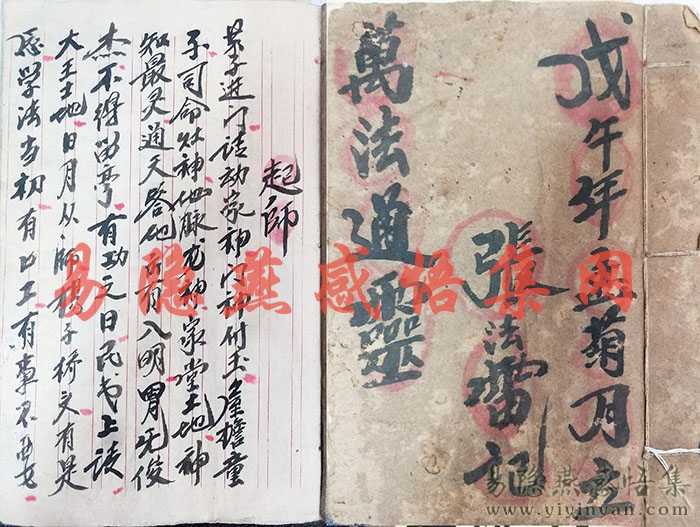 戊午年 菊月立
張法雷記
萬法通靈
起師
弟子進门请动家神门神付土屋檐童
子司命灶神地脉龙神家堂土地神
知最灵通天答地 有入明胃无俊
杰不得留亭有功之日民书上读
大王土地日月从师 子桥又有是
学法当初有口工有事不
易隐燕感悟集网
易隐燕感悟集
www.yiyinyan.com